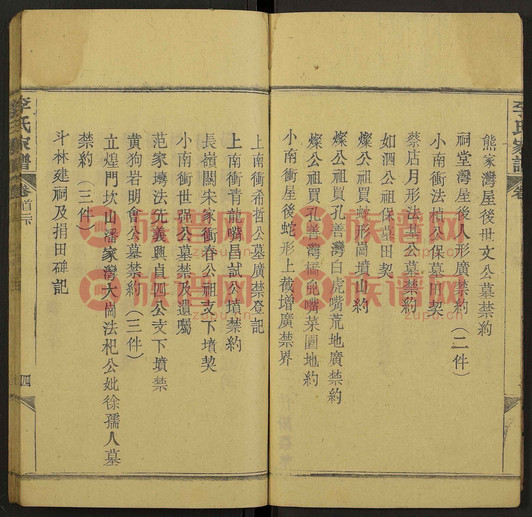 李氏家譜
熊家灣屋後世文公墓禁約
祠堂灣屋後人形廣禁約(二件)
小南衝法杜公保墓田契
蔡店月形法基公墓禁約
如泗公祖保墓田契
燦公祖買蛇形崗墳山約
燦公祖買孔善灣白虎嘴荒地廣禁約
燦公祖買孔善灣虎嘴菜園地約
小南衝屋後蛇形上截增廣禁界
上南衝希哲公墓廣禁登記
上南衝青龍嘴昌試公墳禁約
長嶺關朱家衝春公祖支下墳契
小南衝世强公墓禁及遺囑
范家塆法先義興貞四公支下墳禁
黄狗岩明會公墓禁約(三件)
立煌門坎山潘家灣大崗法杞公妣徐孺人墓
禁約(三件)
斗林建祠及捐田碑記
李氏家譜
卷首
四
族谱网
zupu.cn